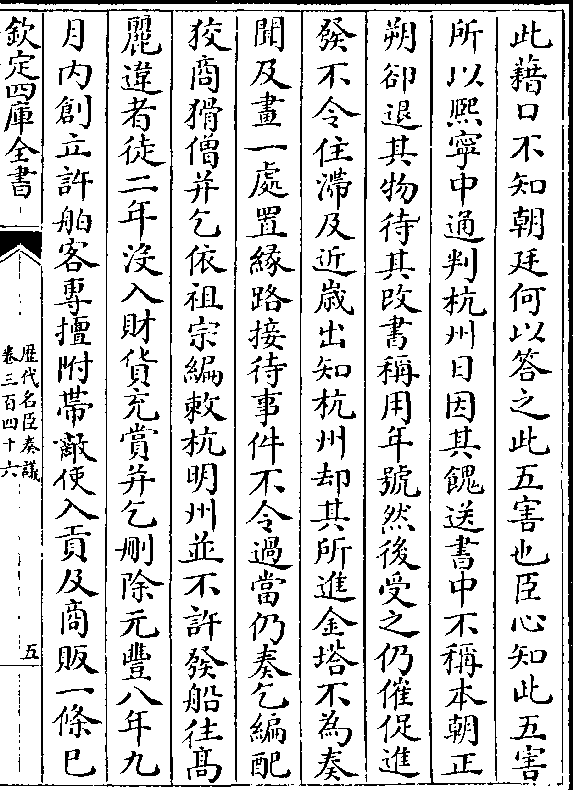 此藉口不知朝廷何以答之此五害也臣心知此五害
所以熈寧中通判杭州日因其餽送書中不稱本朝正
朔卻退其物待其改書稱用年號然後受之仍催促進
發不令住滯及近嵗出知杭州却其所進金塔不為奏
聞及畫一處置縁路接待事件不令過當仍奏乞編配
狡商猾僧并乞依祖宗編敕杭明州並不許發船往髙
麗違者徒二年没入財貨充賞并乞刪除元豐八年九
月内創立許舶客專擅附帶敵使入貢及商販一條已
欽定四庫全書
歴代名臣奏議
卷三百四十六
五